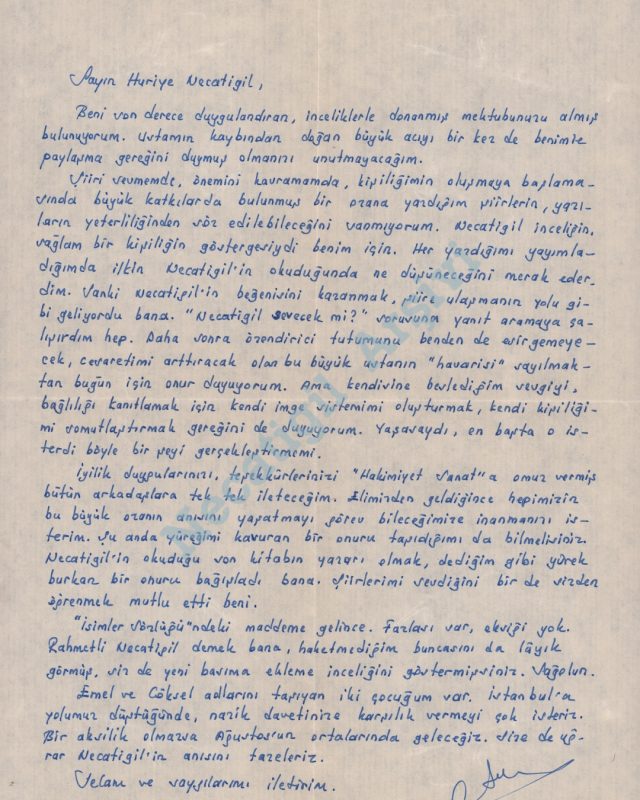 Sayın Huriye Necatigil,
Beni son derece duygulandıran, inceliklerle donanmış mektubunuzu almış
bulunuyorum. Ustamın kaybından doğan büyük acıyı bir kez de benimle
paylaşma gereğini duymuş olmanızı unutmayacağım.
Şiiri sevmemde, önemini kavramamda, kişiliğimin oluşmaya başlama-
sında büyük katkılarda bulunmuş bir ozana yazdığım şiirlerin, yazı-
ların yeterliliğinden söz edilebileceğini sanmıyorum. Necatigil inceliğin,
sağlam bir kişiliğin göstergesiydi benim için. Her yazdığımı yayımla-
dığımda ilkin Necatigil'in okuduğunda ne düşüneceğini merak eder-
dim. Sanki Necatigil'in beğenisini kazanmak, şiire ulaşmanın yolu gi-
bi geliyordu bana. "Necatigil sevecek mi?" sorusuna yanıt aramaya ça-
lışırdım hep. Daha sonra özendirici tutumunu benden de esirgemeye-
cek, cesaretimi arttıracak olan bu büyük ustanın "havarisi" sayılmak-
tan bugün için onur duyuyorum. Ama kendisine beslediğim sevgiyi,
bağlılığı kanıtlamak için kendi imge sistemimi oluşturmak, kendi kişiliği-
mi somutlaştırmak gereğini de duyuyorum. Yaşasaydı, en başta o is-
terdi böyle bir şeyi gerçekleştirmemi.
İyilik duygularınızı, teşekkürlerinizi "Hakimiyet Sanat"a omuz vermiş
bütün arkadaşlara tek tek ileteceğim. Elimizden geldiğince hepimizin
bu büyük ozanın anısını yaşatmayı görev bileceğimize inanmanızı is-
terim. Şu anda yüreğimi kavuran bir onuru taşıdığımı da bilmelisiniz.
Necatigil'in okuduğu son kitabın yazarı olmak, dediğim gibi yürek
burkan bir onuru bağışladı bana. Şiirlerimi sevdiğini bir de sizden
öğrenmek mutlu etti beni.
"İsimler Sözlüğü"ndeki maddeme gelince. Fazlası var, eksiği yok.
Rahmetli Necatigil demek bana, haketmediğim buncasını da lâyık
görmüş, siz de yeni basıma ekleme inceliğini göstermişsiniz. Sağolun.
Emel ve Göksel adlarını taşıyan iki çocuğum var. İstanbul'a
yolumuz düştüğünde, nazik davetinize karşılık vermeyi çok isteriz.
Bir aksilik olmazsa Ağustos'un ortalarında geleceğiz. Size de uğ-
rar Necatigil'in anısını tazeleriz.
Selam ve saygılarımı iletirim.